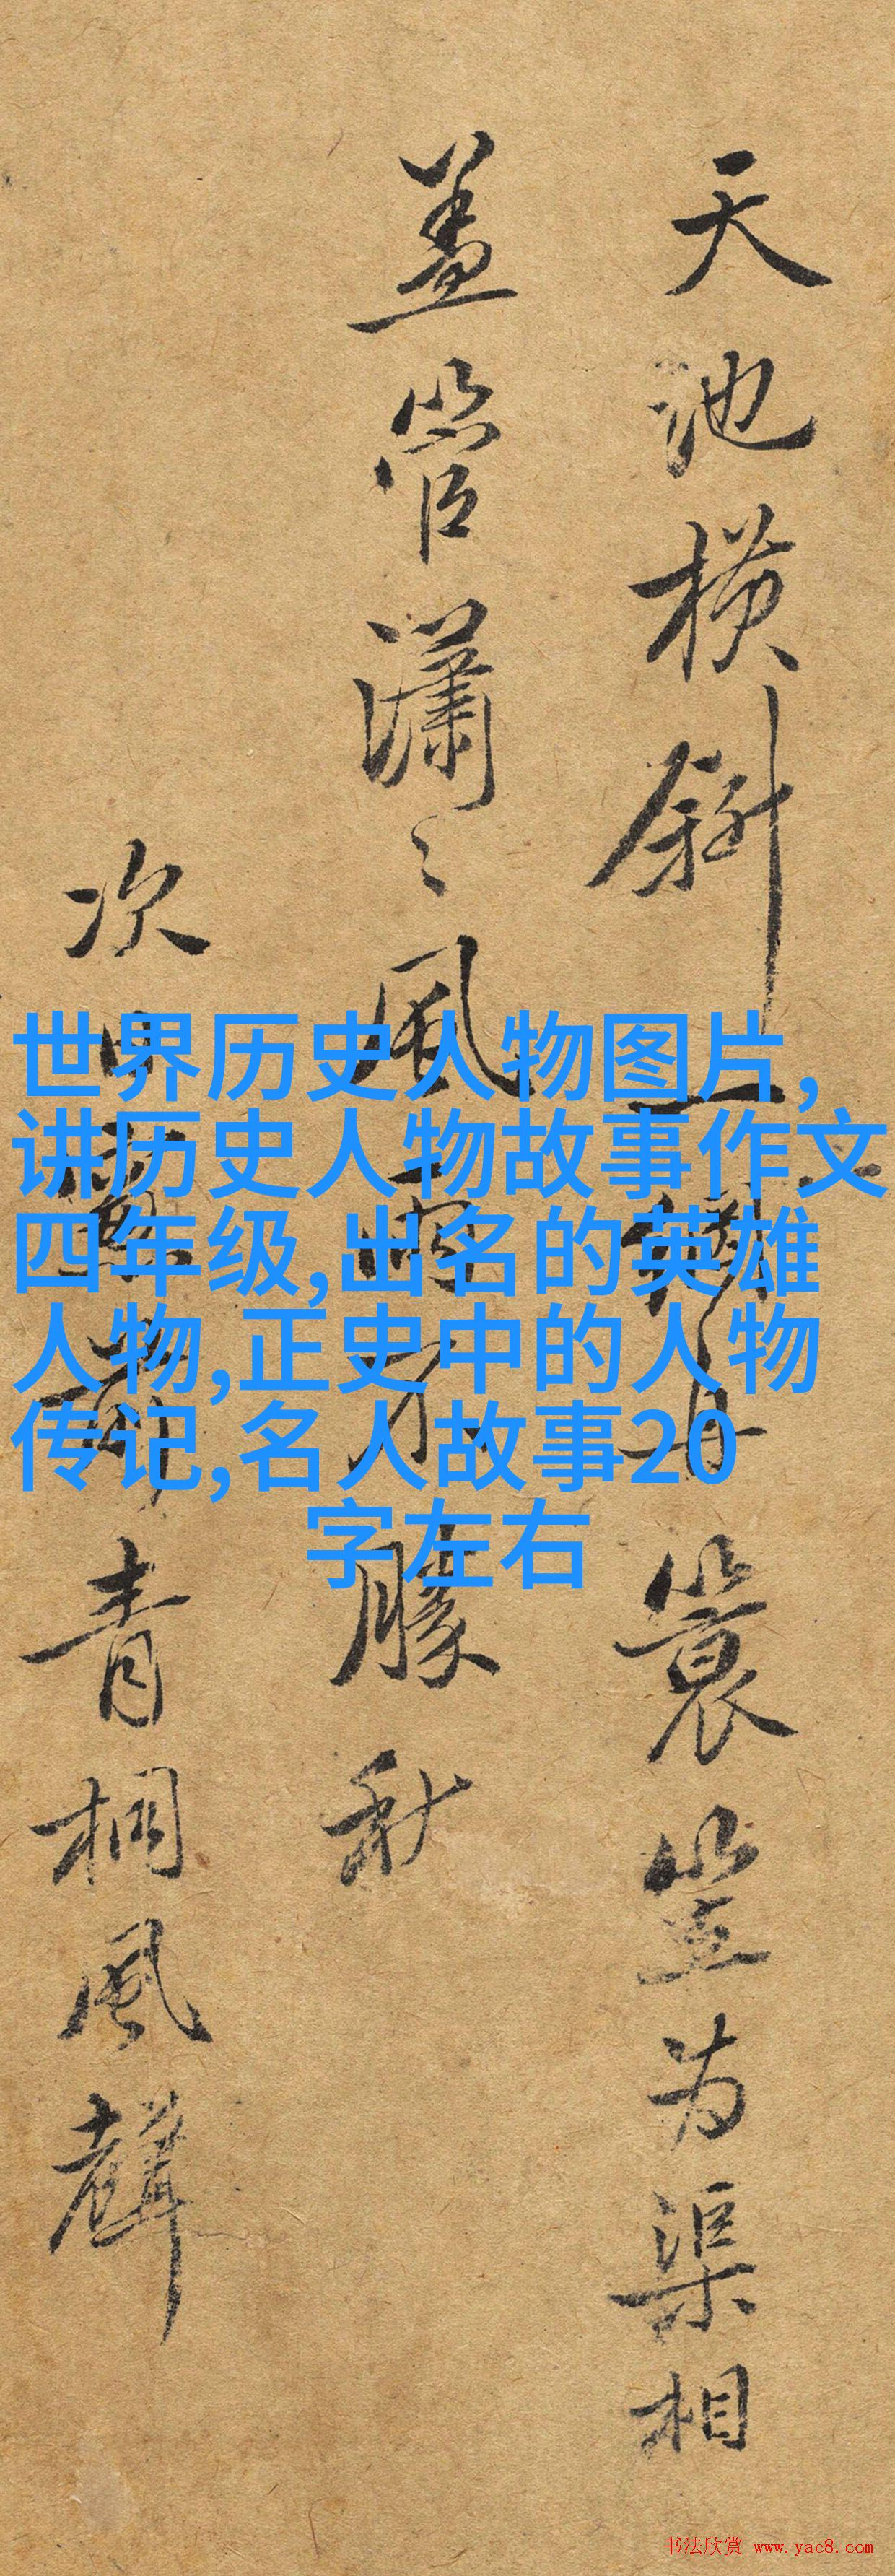 天池橫斜一
蓑笠为渠相
盖管瀟〻風雨不朦秋
次
青桐風聲
世界历史人物图片,
讲历史人物故事作文
四年级,出名的英雄
人物,正史中的人物
传记,名人故事20
字左右
书法欣赏 www.yac8.com